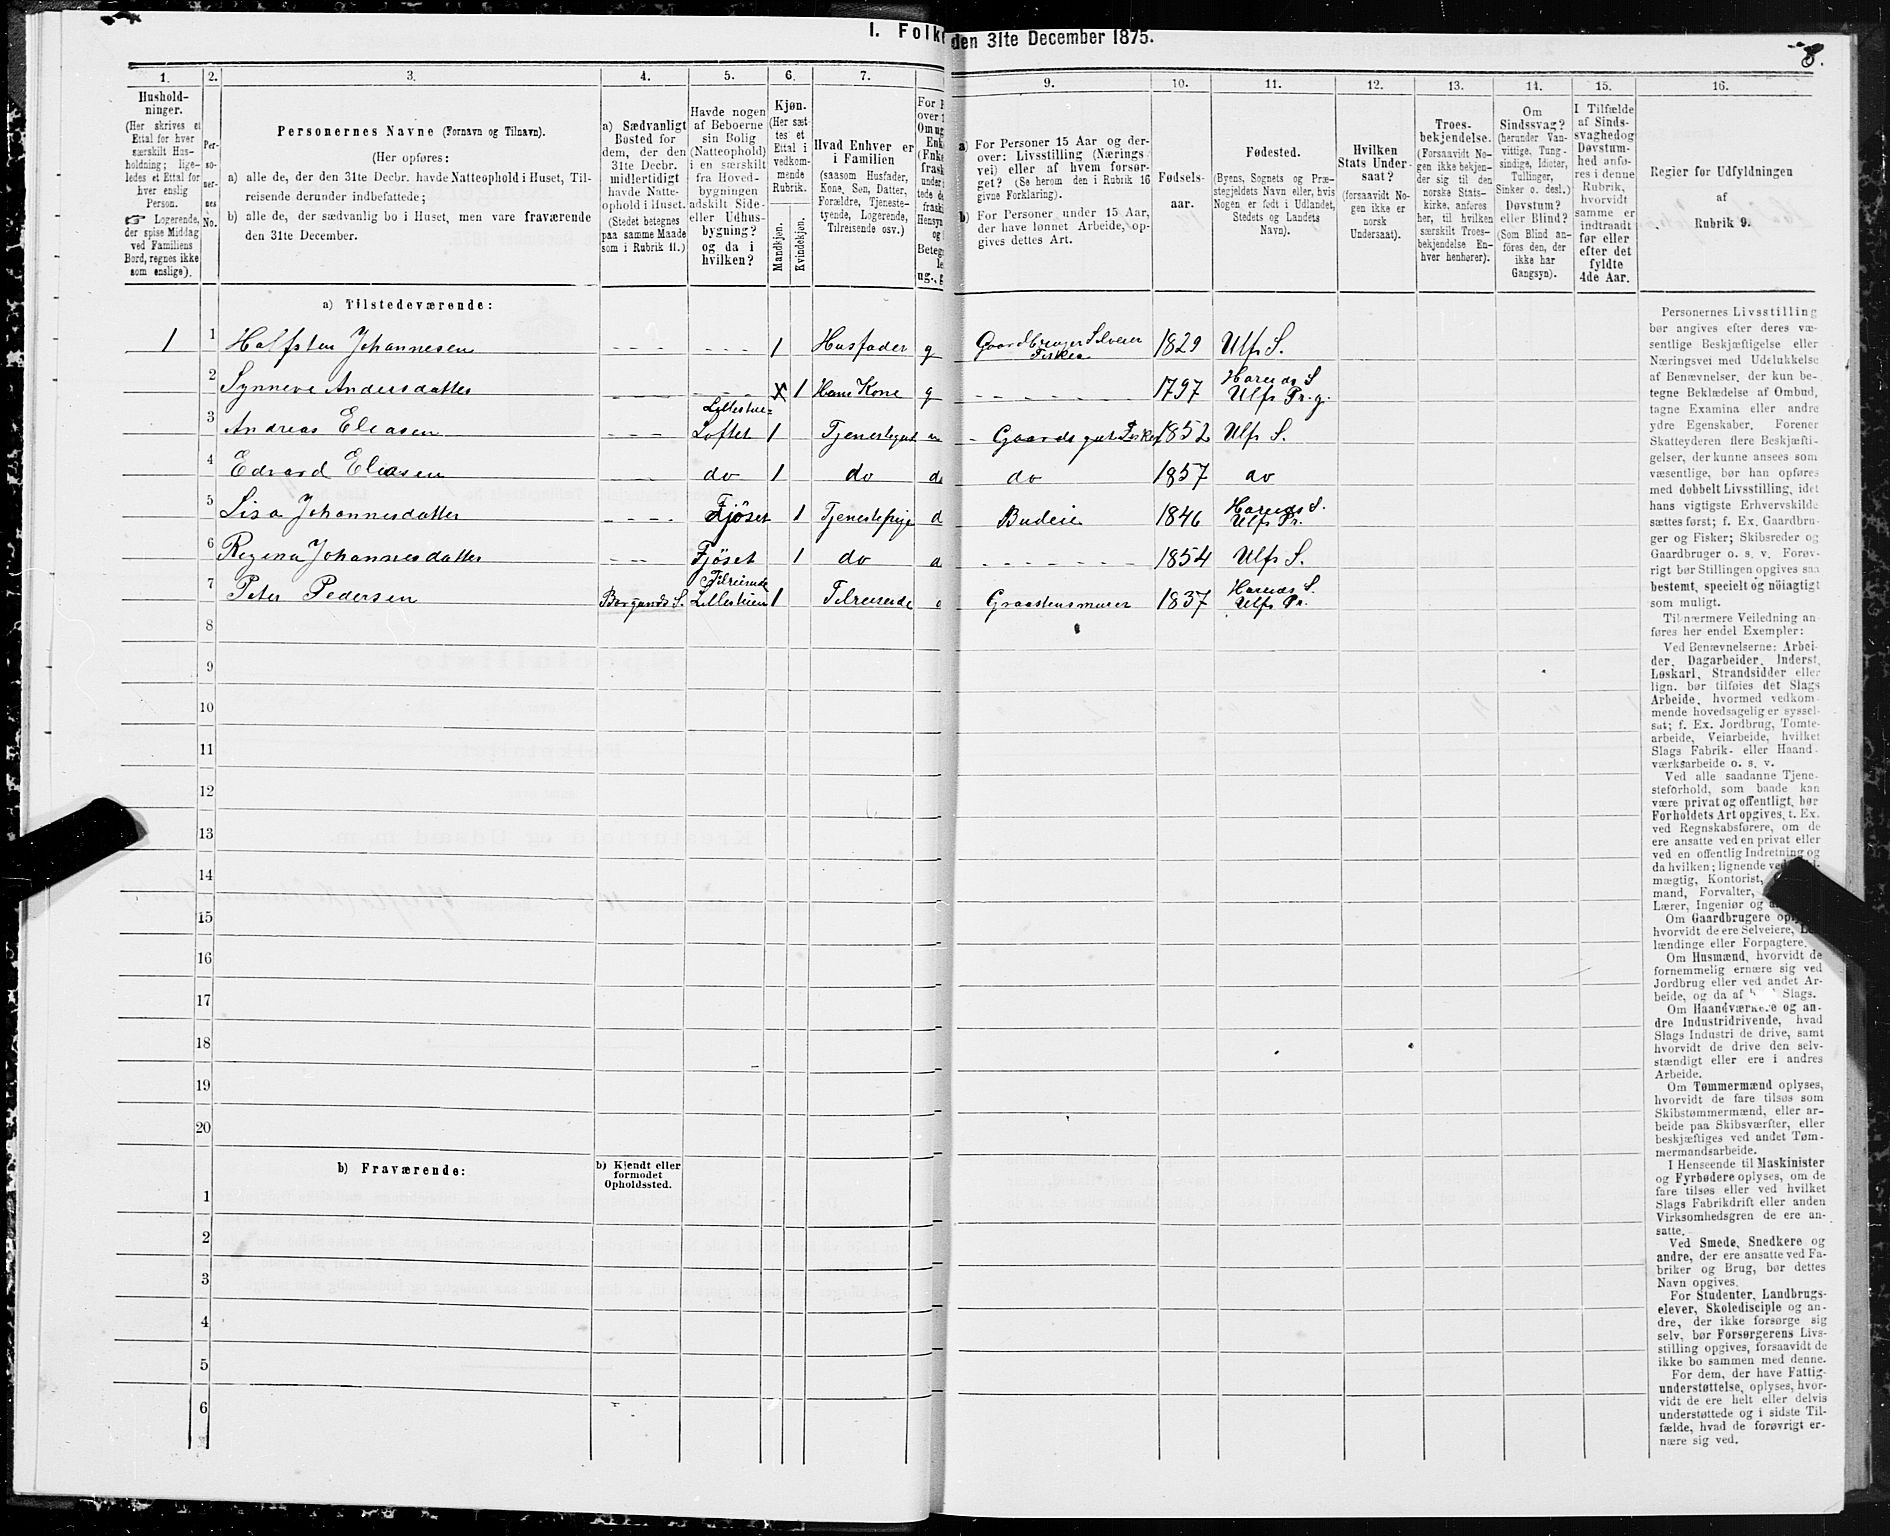 I. Folk
den 31te December 1875.
8.
1.
2.
3.
4.
5.
6.
7.
9.
10.
11.
12.
13.
14.
15.
16.
Hushold-
ninger.
(Her skrives et
Ettal for hver
særskilt Hus-
holdning; lige-
ledes et Ettal for
hver enslig
Person.
☞ Logerende,
der spise Middag
ved Familiens
Bord, regnes ikke
som enslige).
Per-
so-
ner-
nes
No.
Personernes Navne (Fornavn og Tilnavn).
(Her opføres:
a) alle de, der den 31te Decbr. havde Natteophold i Huset, Til-
reisende derunder indbefattede;
b) alle de, der sædvanlig bo i Huset, men vare fraværende
den 31te December.
a) Sædvanligt
Bosted for
dem, der den
31te Decbr.
midlertidigt
havde Natte-
ophold i Huset.
(Stedet betegnes
paa samme Maade
som i Rubrik 11.)
Havde nogen
af Beboerne
sin Bolig
(Natteophold)
i en særskilt
fra Hoved-
bygningen
adskilt Side-
eller Udhus-
bygning?
og da i
hvilken?
Kjøn.
(Her sæt-
tes et
Ettal i
vedkom-
mende
Rubrik.
Mandkjøn.
Kvindekjøn.
Hvad Enhver er
i Familien
(saasom Husfader,
Kone, Søn, Datter,
Forældre, Tjeneste-
tyende, Logerende,
Tilreisende osv.)
a) For Personer 15 Aar og der-
over: Livsstilling (Nærings-
vei) eller af hvem forsør-
get? (Se herom den i Rubrik 16
givne Forklaring).
b) For Personer under 15 Aar,
der have lønnet Arbeide, op-
gives dettes Art.
Fødsels-
aar.
Fødested.
(Byens, Sognets og Præ-
stegjeldets Navn eller, hvis
Nogen er født i Udlandet,
Stedets og Landets
Navn).
Hvilken
Stats Under-
saat?
(forsaavidt No-
gen ikke er
norsk
Undersaat).
Troes-
bekjendelse.
(Forsaavidt No-
gen ikke bekjen-
der sig til den
norske Stats-
kirke, anføres
her, til hvilken
særskilt Troes-
bekjendelse En-
hver henhører).
Om
Sindssvag?
(herunder Van-
vittige, Tung-
sindige, Idioter,
Tullinger,
Sinker o. desl.)
Døvstum?
eller Blind?
(Som Blind an-
føres den, der
ikke har
Gangsyn).
I Tilfælde
af Sinds-
svaghed og
Døvstum-
hed anfø-
res i denne
Rubrik,
hvorvidt
samme er
indtraadt
før eller
efter det
fyldte
4de Aar.
Regler for Udfyldningen
af
Rubrik 9.
a) Tilstedeværende:
1 1 Halfsten Johannesen - - - - - - 1 Husfader g Gaardbruger Selveier Fisker 1829 Ulfs S.
2 Synneve Andersdatter - - - - - x 1 Hans Kone g - - - - - 1797 Hareids S Ulfs Pr.g.
3 Andreas Eleasen - - - Lillestue= Loftet 1 Tjenestegut Gaardsgut Fisker 1852 Ulfs S.
4 Edvard Eleasen - - - do 1 do do 1857 do
5 Lisa Johannesdatter - - - - Fjöset 1 Tjenestepige Budeie 1846 Hareids S. Ulfs Pr.
6 Regina Johannesdatter - - - Fjöset 1 do - - - - - - - 1854 Ulfs S.
7 Peter Pedersen Borgunds S. Tilreisende Lillestuen 1 Tilreisende Graastensmurer 1837 Hareids S. Ulfs Pr.
8
9
10
11
12
13
14
15
16
17
18
19
20
b) Fraværende:
b) Kjendt eller
formodet
Opholdssted.
1
2
3
4
5
6
Personernes Livsstilling
bør angives efter deres væ-
sentlige Beskjæftigelse eller
Næringsvei med Udelukkelse
af Benævnelser, der kun be-
tegne Beklædelse af Ombud,
tagne Examina eller andre
ydre Egenskaber. Forener
Skatteyderen flere Beskjæfti-
gelser, der kunne ansees som
væsentlige, bør han opføres
med dobbelt Livsstilling, idet
hans vigtigste Erhvervskilde
sættes først; f. Ex. Gaardbru-
ger og Fisker; Skibsreder og
Gaardbruger o. s. v. Forøv-
rigt bør Stillingen opgives saa
bestemt, specielt og nöiagtigt
som muligt.
Til nærmere Veiledning an-
føres her endel Exempler:
Ved Benævnelserne: Arbei-
der, Dagarbeider, Inderst,
Løskarl, Strandsidder eller
lign. bør tilføies det Slags
Arbeide, hvormed vedkom-
mende hovedsagelig er syssel-
sat; f. Ex. Jordbrug, Tomte-
arbeide, Veiarbeide, hvilket
Slags Fabrik- eller Haand-
værksarbeide o. s. v.
Ved alle saadanne Tjene-
steforhold, som baade kan
være privat og offentligt, bør
Forholdets Art opgives, t. Ex.
ved Regnskabsførere, om de
ere ansatte ved en privat eller
ved en offentlig Indretning og
da hvilken; lignende ved
mægtig, Kontorist,
mand, Forvalter,
Lærer, Ingeniør og
Om Gaardbrugere
hvorvidt de ere Selveiere,
lændinge eller Forpagtere.
Om Husmænd, hvorvidt de
fornemmelig ernære sig ved
Jordbrug eller ved andet Ar-
beide, og da af Slags.
Om Haandværkere og an-
dre Industridrivende, hvad
Slags Industri de drive, samt
hvorvidt de drive den selv-
stændigt eller ere i andres
Arbeide.
Om Tømmermænd oplyses,
hvorvidt de fare tilsøs som
Skibstømmermænd, eller ar-
beide paa Skibsværfter, eller
beskjæftiges ved andet Tøm-
mermandsarbeide.
I Henseende til Maskinister
og Fyrbødere oplyses, om de
fare tilsøs eller ved hvilket
Slags Fabrikdrift eller anden
Virksomhedsgren de ere an-
satte.
Ved Smede, Snedkere og
andre, der ere ansatte ved Fa-
briker og Brug, bør dettes
Navn opgives.
For Studenter, Landbrugs-
elever, Skoledisciple og an-
dre, der ikke forsørge sig
selv, bør Forsørgerens Livs-
stilling opgives, forsaavidt de
ikke bo sammen med denne.
For dem, der have Fattig-
understøttelse, oplyses, hvor-
vidt de ere helt eller delvis
understøttede og i sidste Til-
fælde, hvad de forøvrigt er-
nære sig ved.